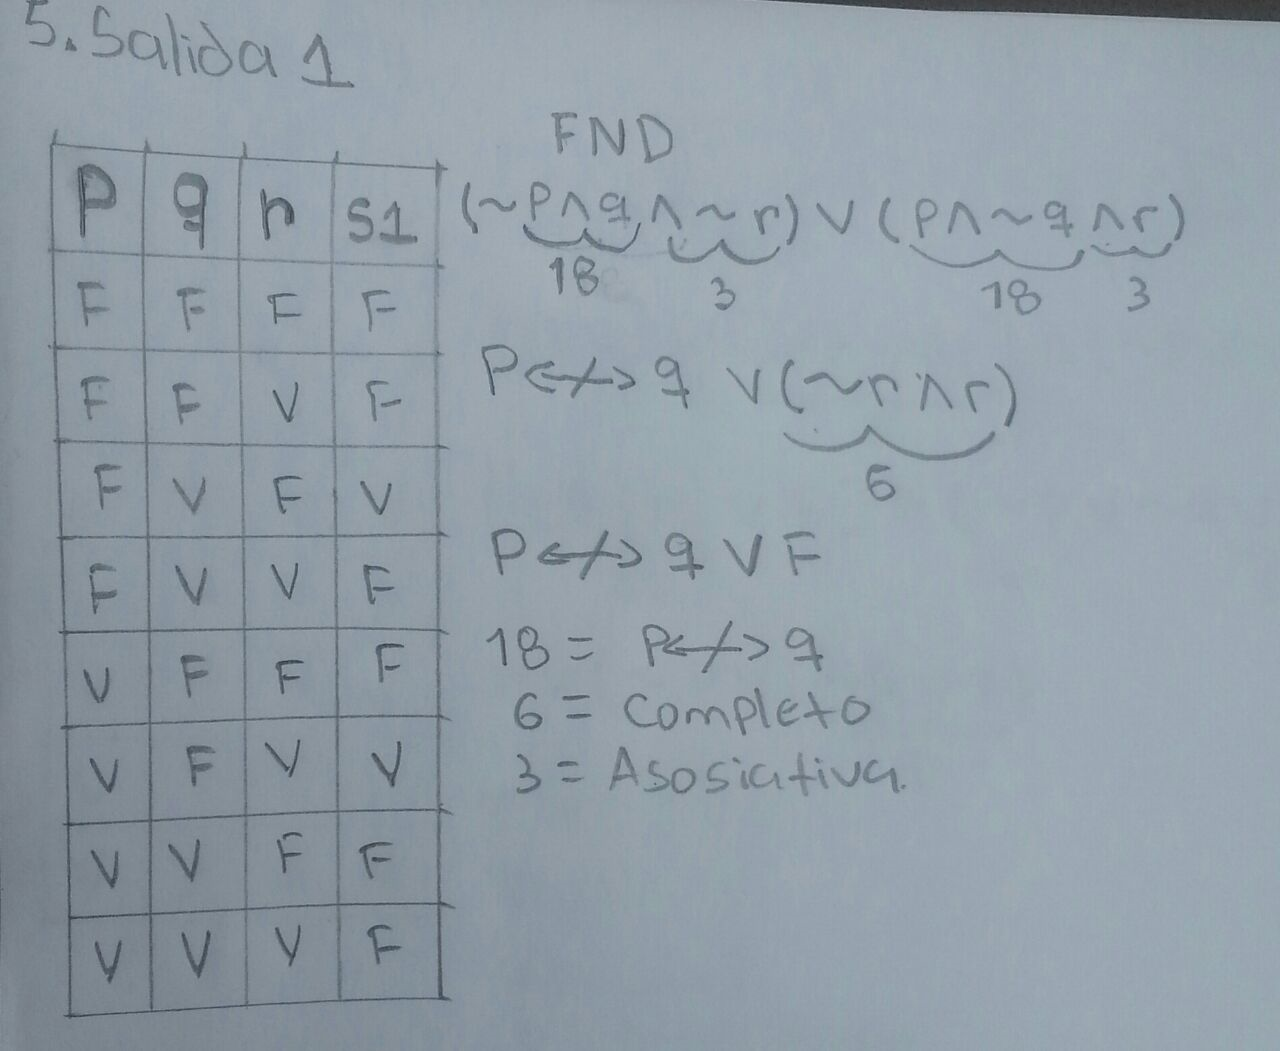 5. Salida 1
FND
p q r S1
F F F F
F F V F
F V F V
F V V F
V F F F
V F V V
V V F F
V V V F
(~p∧q∧~r)∨(p∧~q∧r)
18 3 18 3
P<-/->q ∨(~r∧r)
6
P<-/->q ∨ F
18 = P<-/->q
6 = Completo
3 = Asosiativa.